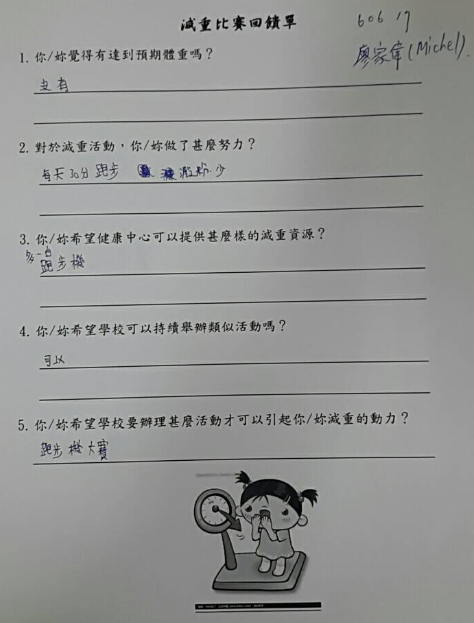 減重比賽回饋單
606 19
廖家偉 (Michel)
1. 你/妳覺得有達到預期體重嗎？
有
2. 對於減重活動，你/妳做了甚麼努力？
每天30分 跑步 澱粉少
3. 你/妳希望健康中心可以提供甚麼樣的減重資源？
多一台
跑步機
4. 你/妳希望學校可以持續舉辦類似活動嗎？
可以
5. 你/妳希望學校要辦理甚麼活動才可以引起你/妳減重的動力？
跑步機大賽